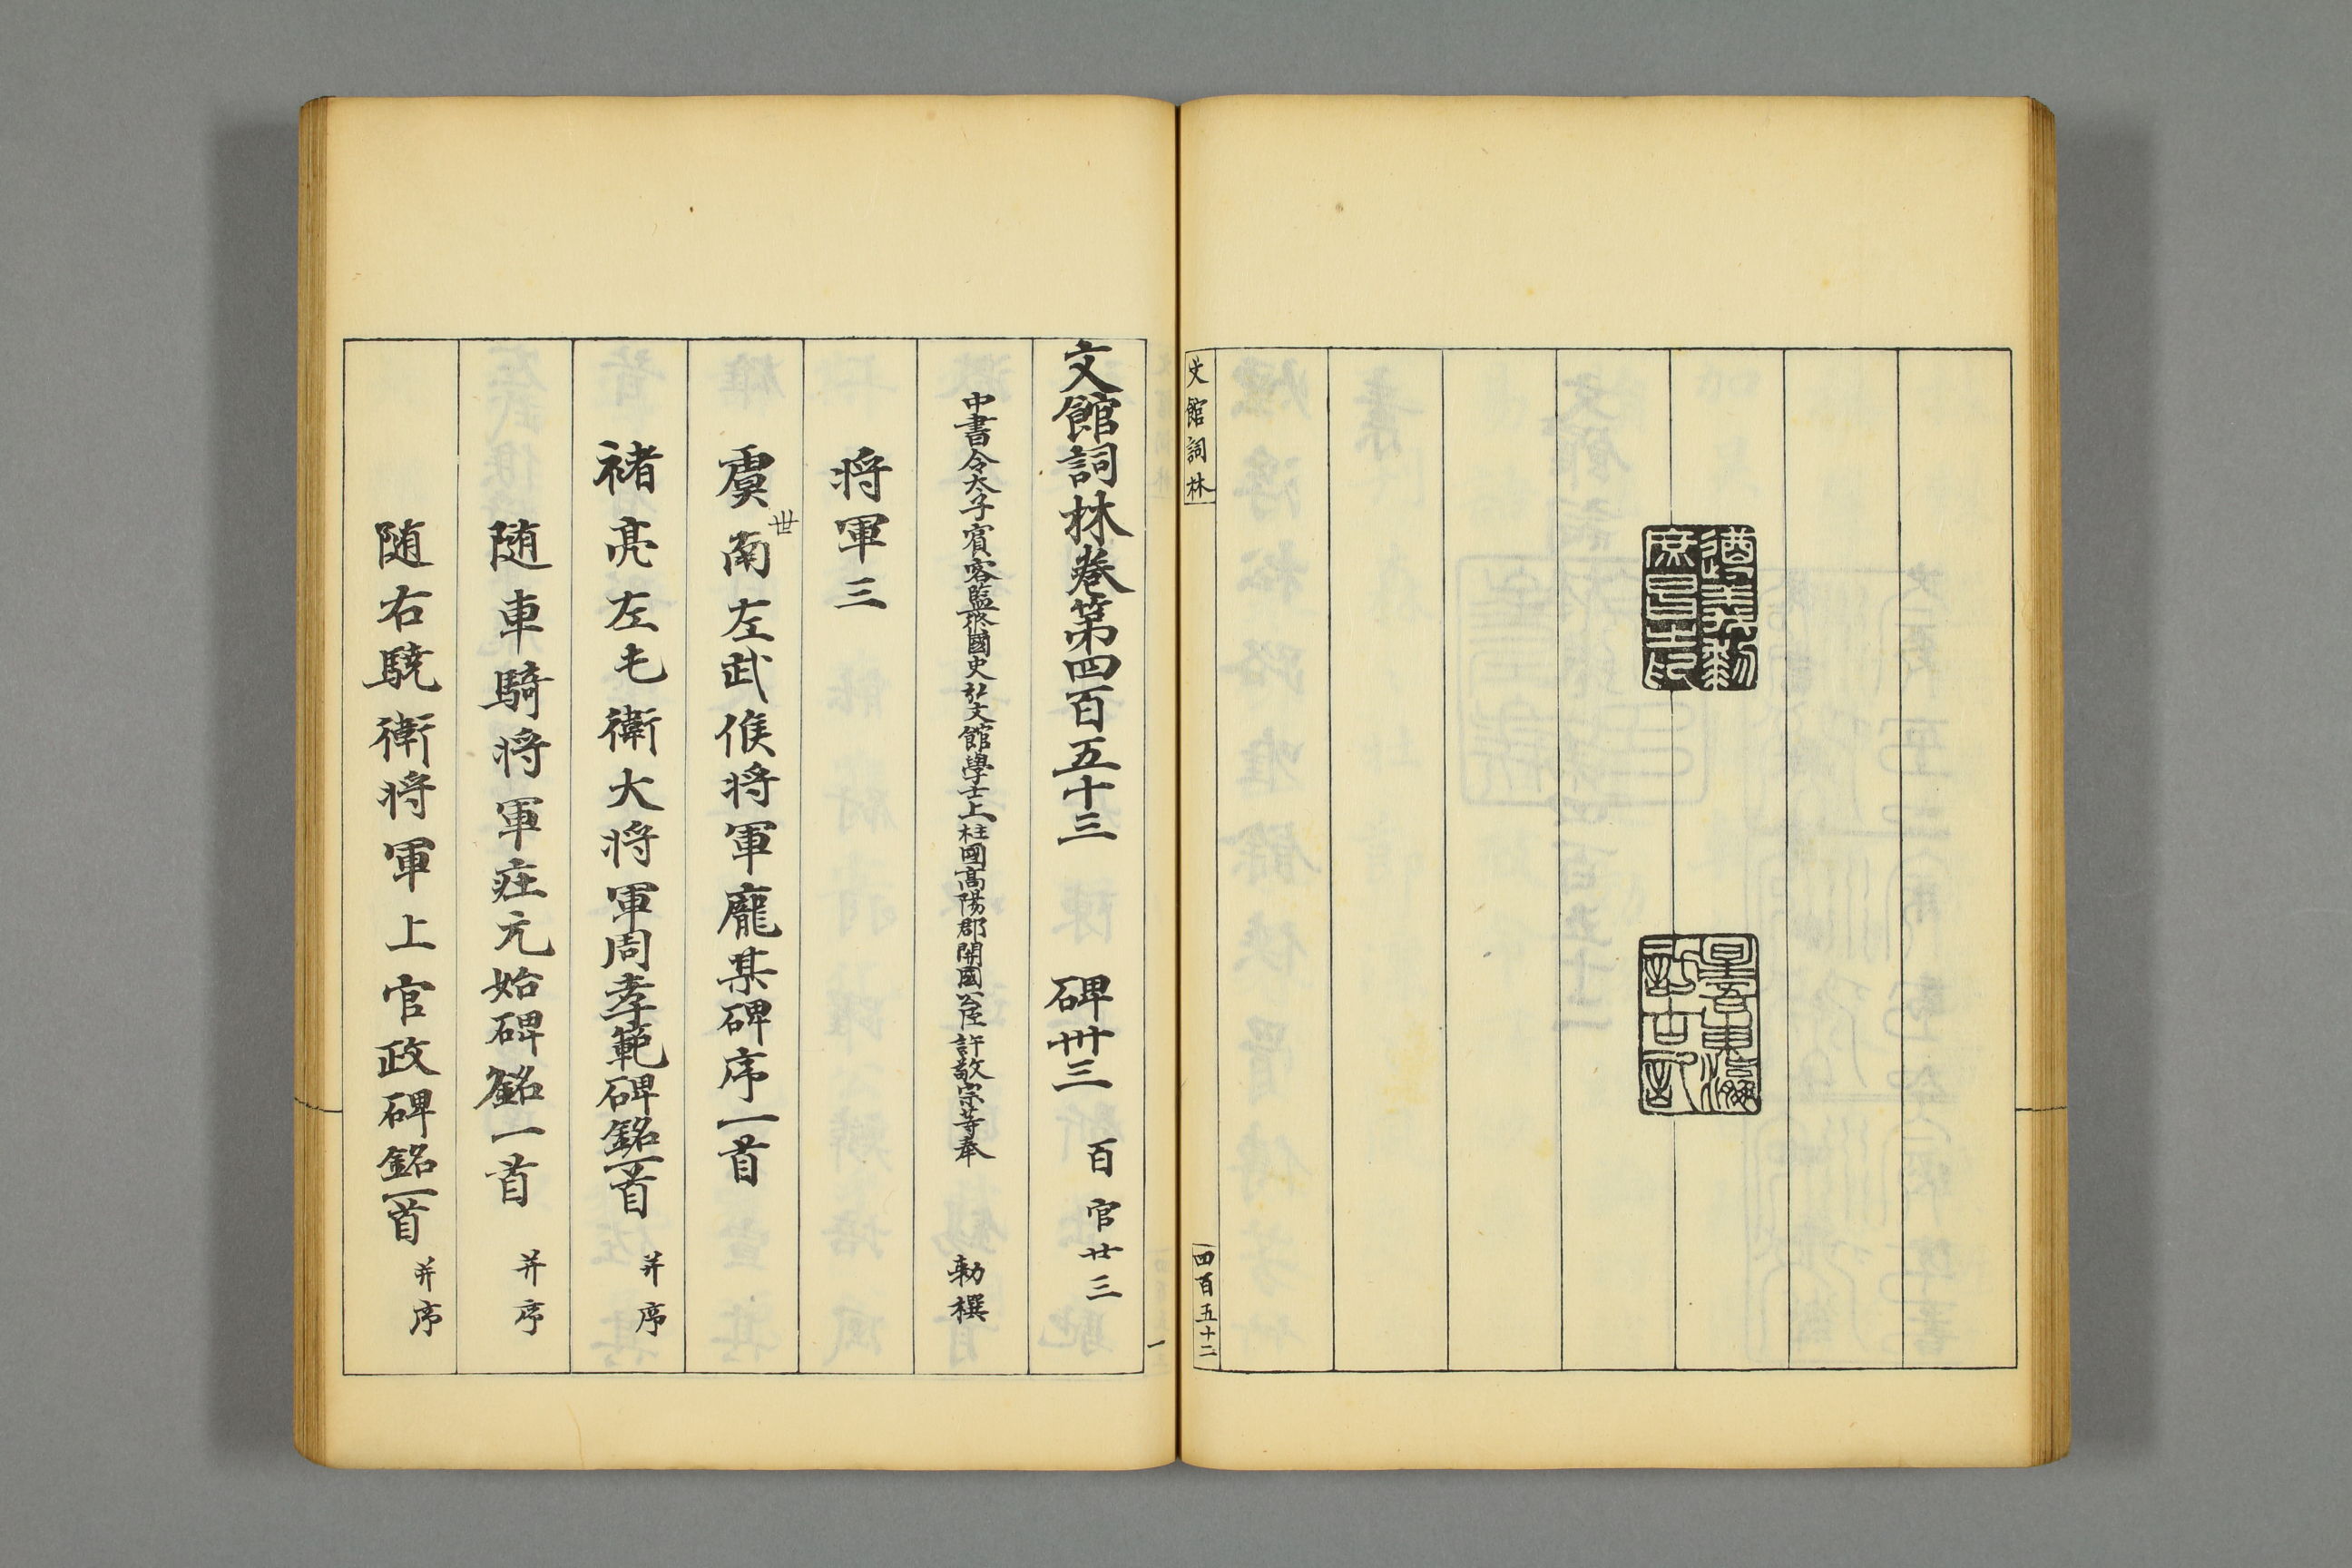 遵義黎
庶昌之印
星吾東瀛
訪古記
文館詞林
四百五十二
文館詞林卷第四百五十三 碑卅三 百官廿三
中書令太子賓客監修國史弘文館學士上柱國高陽郡開國公臣許敬宗等奉 勅撰
将軍三
虞世南左武候将軍龐某碑序一首
褚亮左屯衛大将軍周孝範碑銘一首 并序
随車騎将軍莊元始碑銘一首 并序
随右驍衛将軍上官政碑銘一首 并序
一